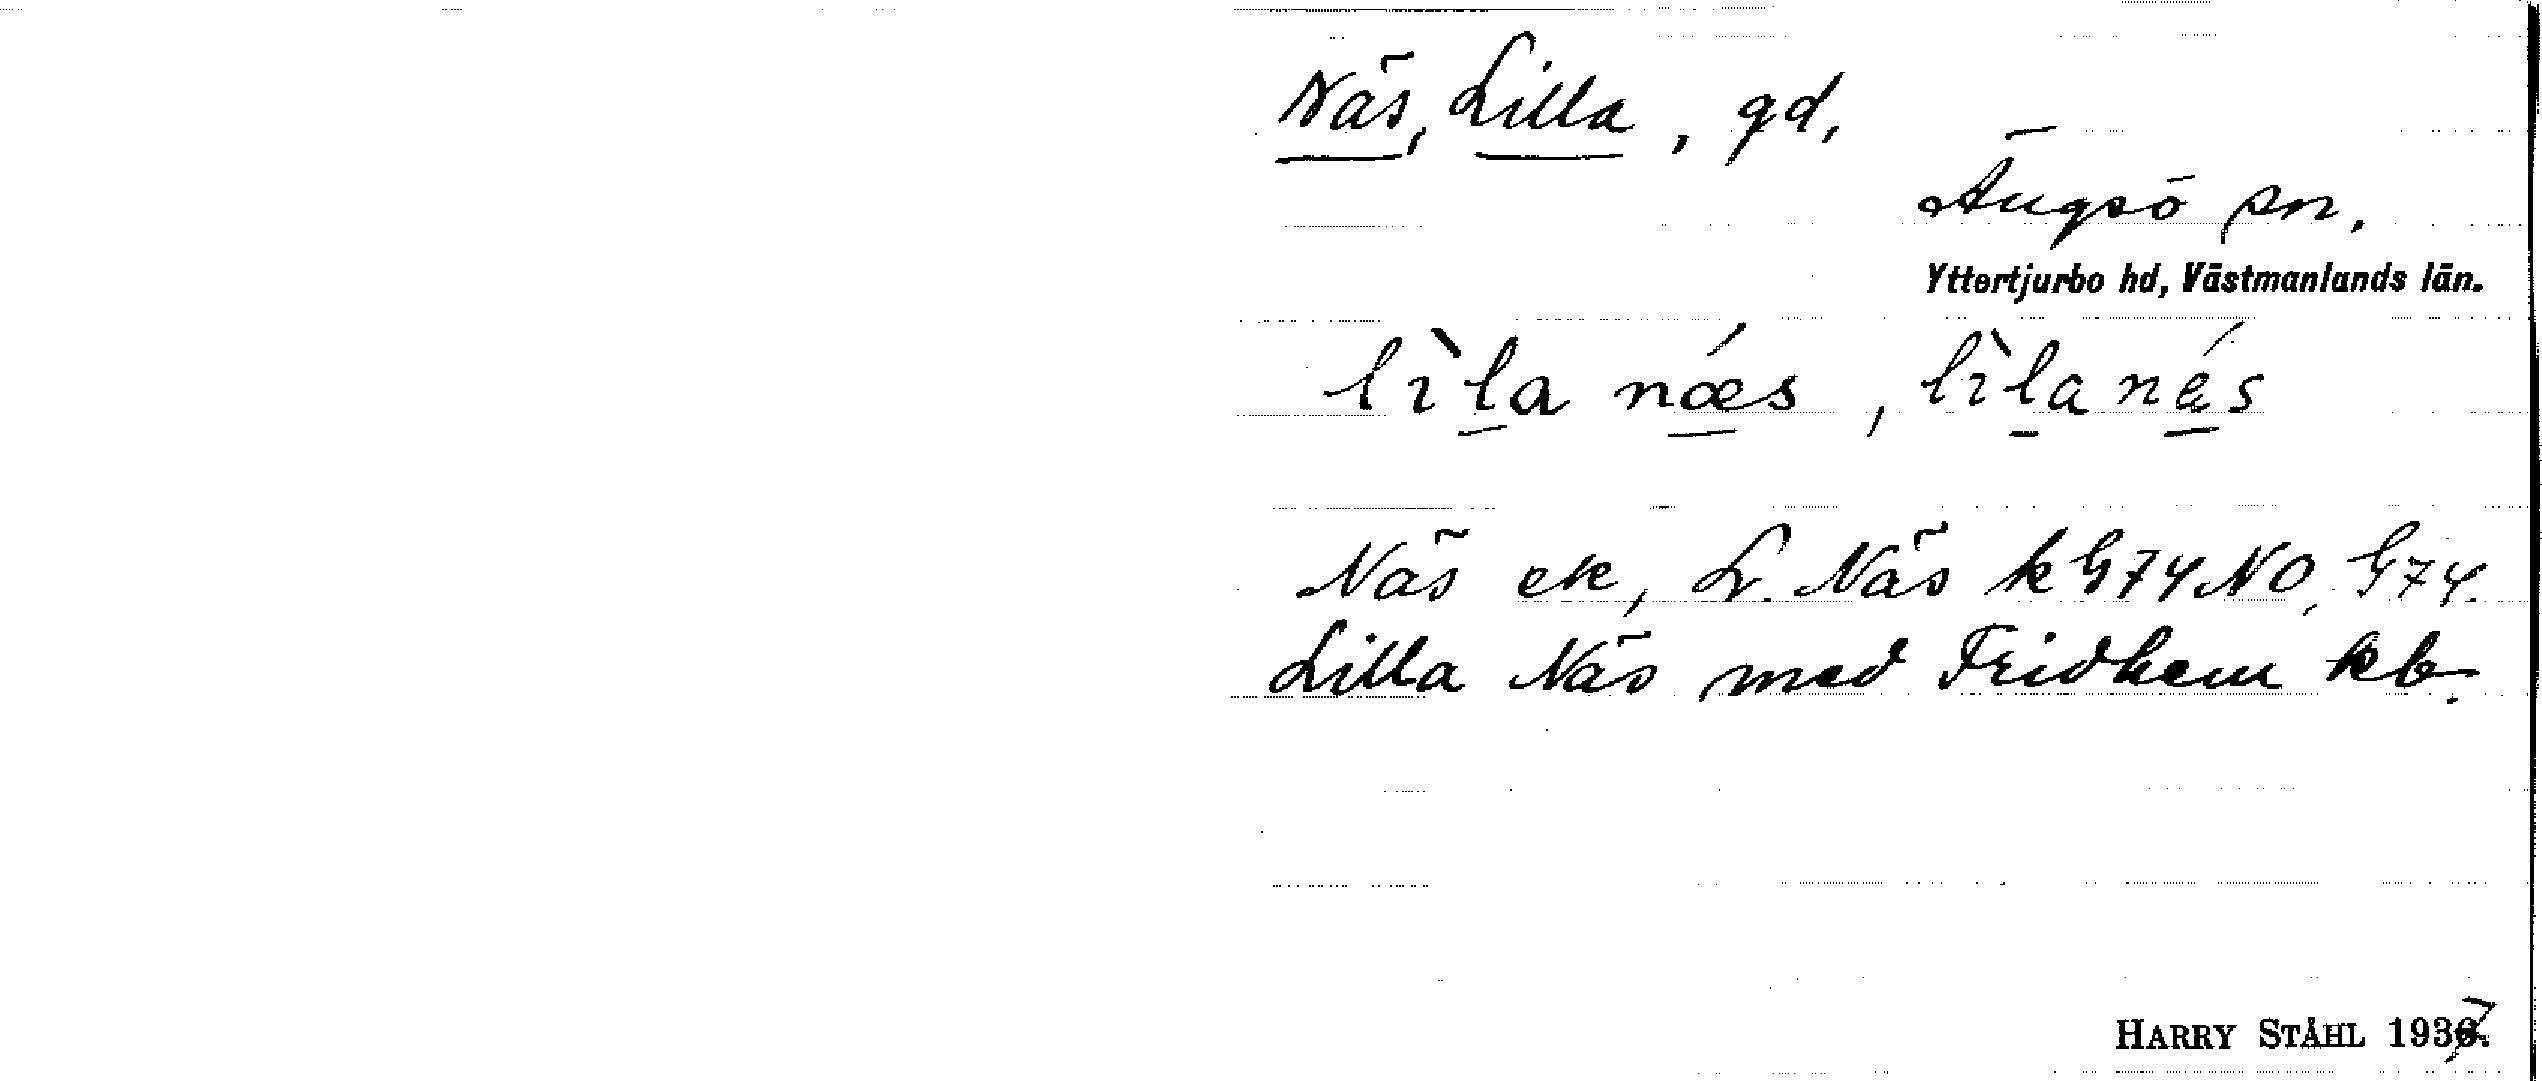 Näs, Lilla, gd,
Ängsö sn.
Yttertjurbo hd, Västmanlands län.
lìla nǽs, lìlanés
Näs ek, L. Näs k G74NO, G74.
Lilla Näs med Fridhem kb.
HARRY STÅHL 1937.